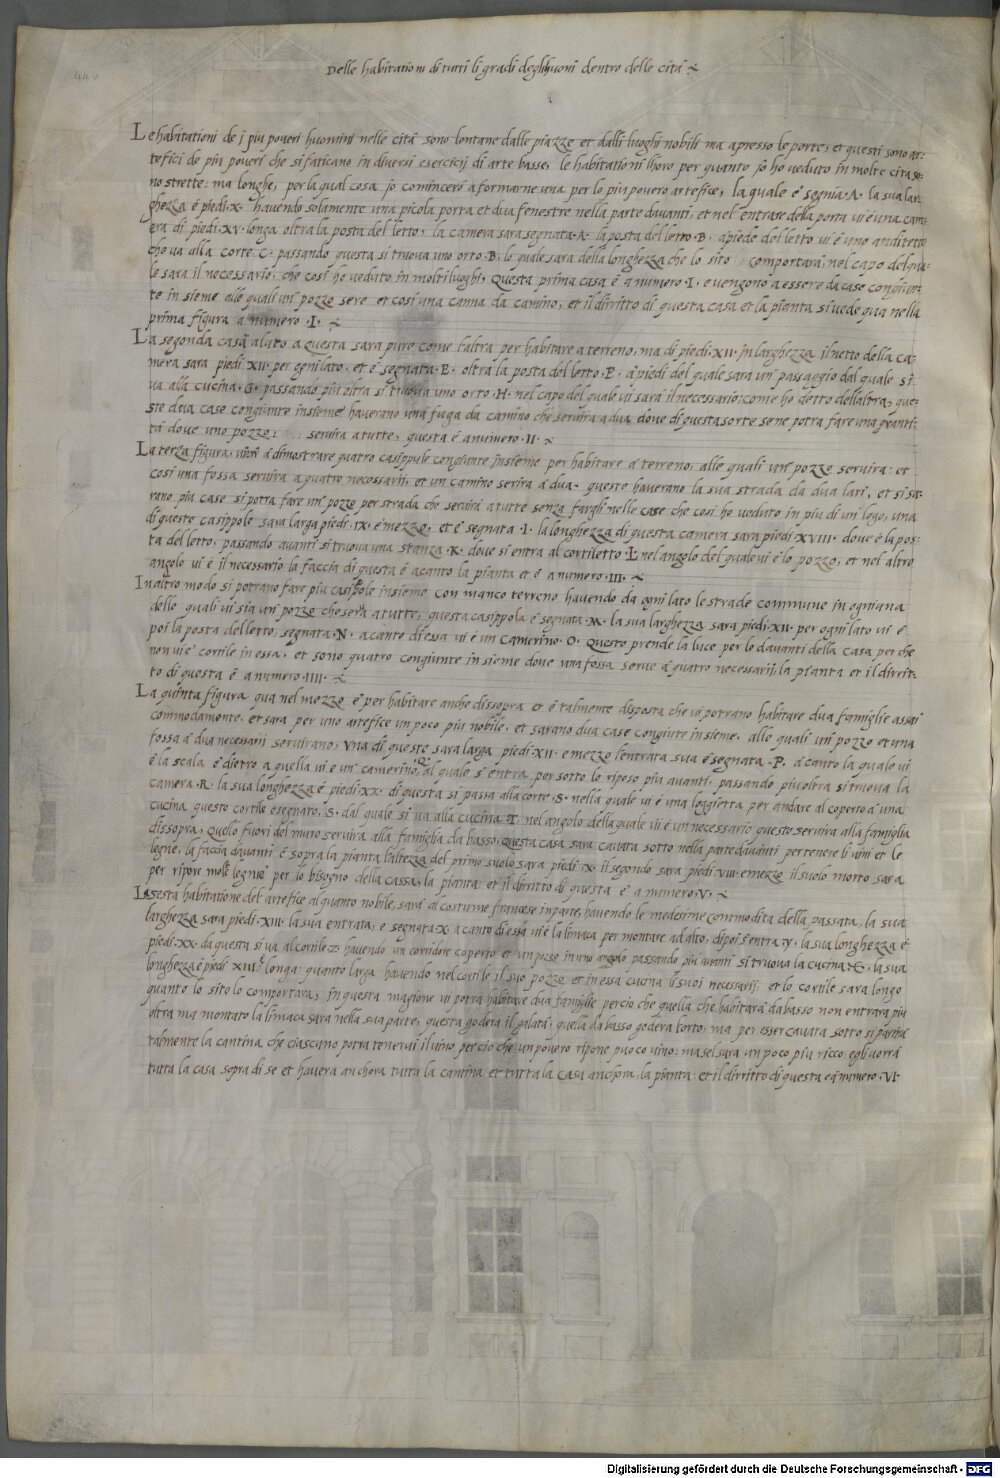 44v
Delle habitationi di tutti li gradi deglihuomi dentro delle cita
Le habitationi de j piu poveri huomini nelle cita sono lontane dalle piazze et dalli luoghi nobili ma apresso le porte, et questi sono ar-
tefici de piu poveri che si faticano in diversi esercicij di arte basse, le habitationi lhoro per quanto jo ho veduto in molte cita so-
no strette: ma longhe, per la qual cosa jo comincero a formarne una per lo piu povero artefice, la quale e segnia .A. la sua lar-
ghezza é piedi .X. havendo solamente una picola porta et dua fenestre nella parte davanti, et nel entrare della porta vi é una cam-
era di piedi .XV. longa oltra la posta del letto, la camera sara segnata .A. la posta del letto .B. apiede del letto vi é uno andito
che va alla corte .C. passando questa si truova uno orto .D. lo quale sara della longhezza che lo sito comportara, nel capo del qua-
le sara il necessario, che cosi ho veduto in molti luoghi, questa prima casa é a numero .I. e vengono a essere da case congiun-
te insieme alle quali un pozzo serve et cosi una canna da camino, et il diritto di questa casa et la pianta si vede qua nella
prima figura a numero .I.
La segonda casa alato a questa sara pure come l'altra per habitare a terreno, ma di piedi .XII. in larghezza il netto della ca-
mera sara piedi .XII. per ogni lato, et é segnata .E. oltra la posta del letto .F. a piedi del quale sara un passaggio dal quale si
va alla cucina .G. passando piu oltra si truova uno orto .H. nel capo del quale vi sara il necessario, come ho detto dell'altra, que-
ste dua case congiunte insieme haverano una fuga da camino che servira a dua, dove di questa sorte se ne potra fare una quanti-
tá dove uno pozzo servira a tutte, questa é a numero .II.
La terza figura, viene a dimostrare quatro casippule congiunte insieme per habitare a terreno, alle quali un pozzo servira: et
cosi una fossa servira a quatro necessarii, et un camino servira a dua. queste haverano la sua strada da dua lati, et si sa-
rano piu case si potra fare un pozzo per strada che servira a tutte senza fargli nelle case che cosi ho veduto in piu di un logo, una
di queste casippole sara larga piedi .IX. e mezzo, et é segnata .I. la longhezza di questa camera sara piedi XVIII. dove é la pos-
ta del letto, passando avanti si truova una stanza .K. dove si entra al cortiletto .L. nel angolo del quale vi é lo pozzo, et nel altro
angolo vi é il necessario la faccia di questa é acanto la pianta et é a numero .III.
In altro modo si potrano fare piu casipole insieme con manco terreno havendo da ogni lato le strade commune in ogniuna
delle quali vi sia un pozzo che servi a tutte, questa casippola é segnata .M. la sua larghezza sara piedi .XII. per ogni lato vi é
poi la posta del letto, segnata .N. acanto di essa vi é un camerino .O. Questo prende la luce per lo davanti della casa per che
non vi é cortile in essa. et sono quatro congiunte insieme dove una fossa serve a quatro necessarii, la pianta et il dirrit-
to di questa é a numero .IIII.
La quinta figura qua nel mezzo é per habitare anche dissopra et é talmente disposta che vi potrano habitare dua famiglie assai
commodamente. et sara per uno artefice un poco piu nobile. et sarano dua case congiute insieme, alle quali un pozzo et una
fossa a dua necessarii servirano, Una di queste sara larga piedi .XII. e mezzo l'entrata sua é segnata .P. acanto la quale vi
é la scala é dietro a quella vi é un camerino .Q. al quale si entra per sotto lo riposo piu avanti, passando piu oltra si truova la
camera .R. la sua longhezza é piedi .XX. di questa si passa alla corte .S. nella quale vi é una loggietta per andare al coperto a una
cucina questo cortile e segnato .S. dal quale si va alla cucina .T. nel angolo della quale vi é un necessario questo servira alla famiglia
dissopra, Quello fuori del muro servira alla famiglia da basso, questa casa sara cavata sotto nella parte davanti per tenere li vini et le
legne, la faccia davanti é sopra la pianta l'altezza del primo suolo sara piedi .X. il segondo sara piedi .VIII. e mezzo il suolo morto sara
per ripore molte legnie per lo bisogno della cassa, la pianta et il dirritto di questa é a numero .V.
La sesta habitatione del artefice al quanto nobile, sara al costume francese in parte, havendo le medesime commodita della passata, la sua
larghezza sara piedi .XIII. la sua entrata, e segnata X. acanto di essa vi é la limaca per montare ad alto, dipoi s'entra .Y. la sua longhezza é
piedi .XX. da questa si va al cortile .Z. havendo un corridore coperto et un pozzo in uno angolo passando piu avanti si truova la cucina .&. la sua
longhezza é piedi XIII. longa quanto larga havendo nel cortile il suo pozzo et in essa cucina li suoi necessarij. et lo cortile sara longo
quanto lo sito lo comportara, in questa magione vi potra habitare dua famiglie percio che quella che habitara da basso non entrara piu
oltra ma montato la limaca sara nella sua parte, questa godera il galatá, quella da basso godera l'orto, ma per esser cavata sotto si partira
talmente la cantina che ciascuno potra tenervi il vino per cio che un povero ripone puoco vino: ma sel sara un poco piu ricco egli vorrá
tutta la casa sopra di se et havera anchora tutta la cantina et tutta la casa anchora, la pianta: et il dirritto di questa e a numero .VI.
Digitalisierung gefördert durch die Deutsche Forschungsgemeinschaft - DFG